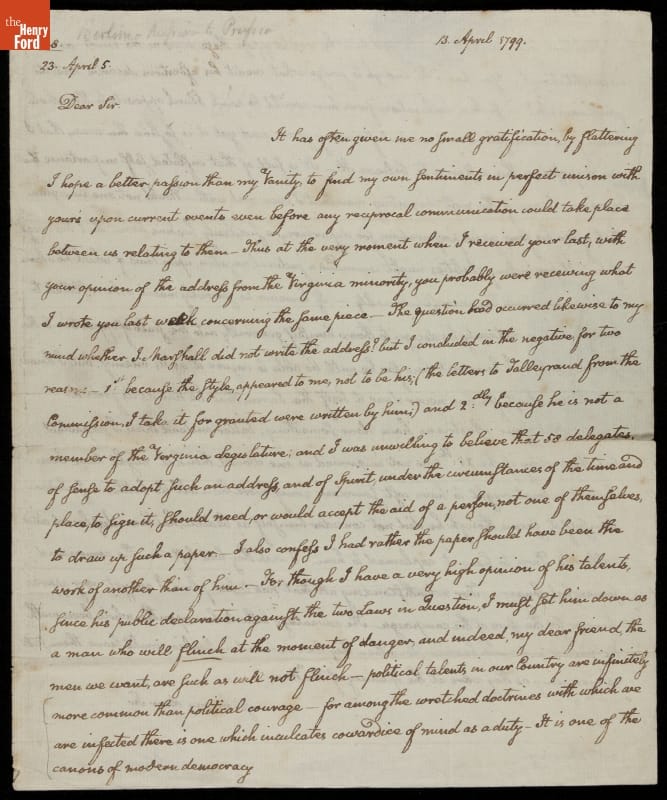 the
Henry
Ford
8.
13. April 1799.
23. April 5.
Dear Sir.
It has often given me no small gratification, by flattering
I hope a better passion than my Vanity, to find my own sentiments in perfect unison with
yours upon current events even before any reciprocal communication could take place
between us relating to them — Thus at the very moment when I received your last, with
your opinion of the address from the Virginia minority, you probably were receiving what
I wrote you last week concerning the same piece — The question had occurred likewise to my
mind whether J. Marshall did not write the address? but I concluded in the negative for two
reasons — 1st because the style, appeared to me, not to be his; (the letters to Talleyrand from the
Commission, I take it for granted were written by him;) and 2dly because he is not a
member of the Virginia Legislature; and I was unwilling to believe that 58 delegates,
of sense to adopt such an address, and of spirit, under the circumstances of the time and
place, to sign it, should need, or would accept the aid of a person, not one of themselves,
to draw up such a paper — I also confess I had rather the paper should have been the
work of another than of him — For though I have a very high opinion of his talents,
since his public declaration against the two Laws in question, I must set him down as
a man who will flinch at the moment of danger, and indeed, my dear friend, the
men we want, are such as will not flinch — political talents in our Country are infinitely
more common than political courage — for among the wretched doctrines with which we
are infected there is one which inculcates cowardice of mind as a duty — It is one of the
canons of modern democracy